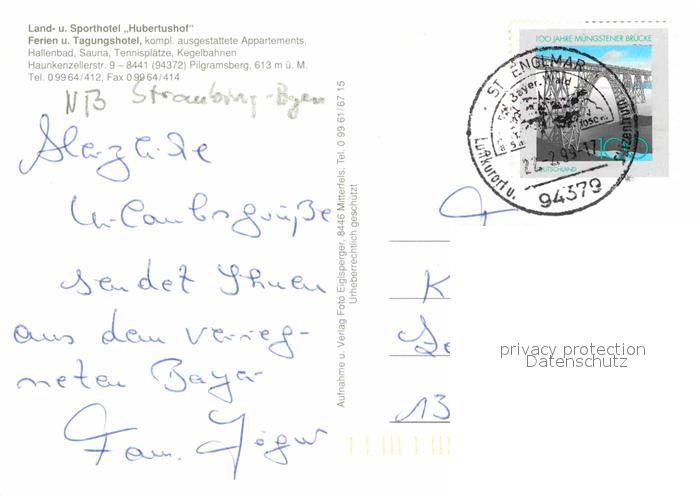 Land- u. Sporthotel „Hubertushof"
Ferien u. Tagungshotel, kompl. ausgestattete Appartements,
Hallenbad, Sauna, Tennisplätze, Kegelbahnen
Haunkenzellerstr. 9 – 8441 (94372) Pilgramsberg, 613 m ü. M.
Tel. 0 99 64 / 412, Fax 0 99 64 / 414
NB Straubing-Bgen
Herzliche
Urlaubsgrüße
sendet Ihnen
aus dem verreg-
neten Bayer
Fam.
Aufnahme u. Verlag Foto Eiglsperger, 8446 Mitterfels, Tel. 0 99 61/67 15
Urheberrechtlich geschützt
100 JAHRE MÜNGSTENER BRÜCKE
100
DEUTSCHLAND
ST. ENGLMAR
Bayer. Wald
Luftkurort u.
94379
K
13
privacy protection
Datenschutz